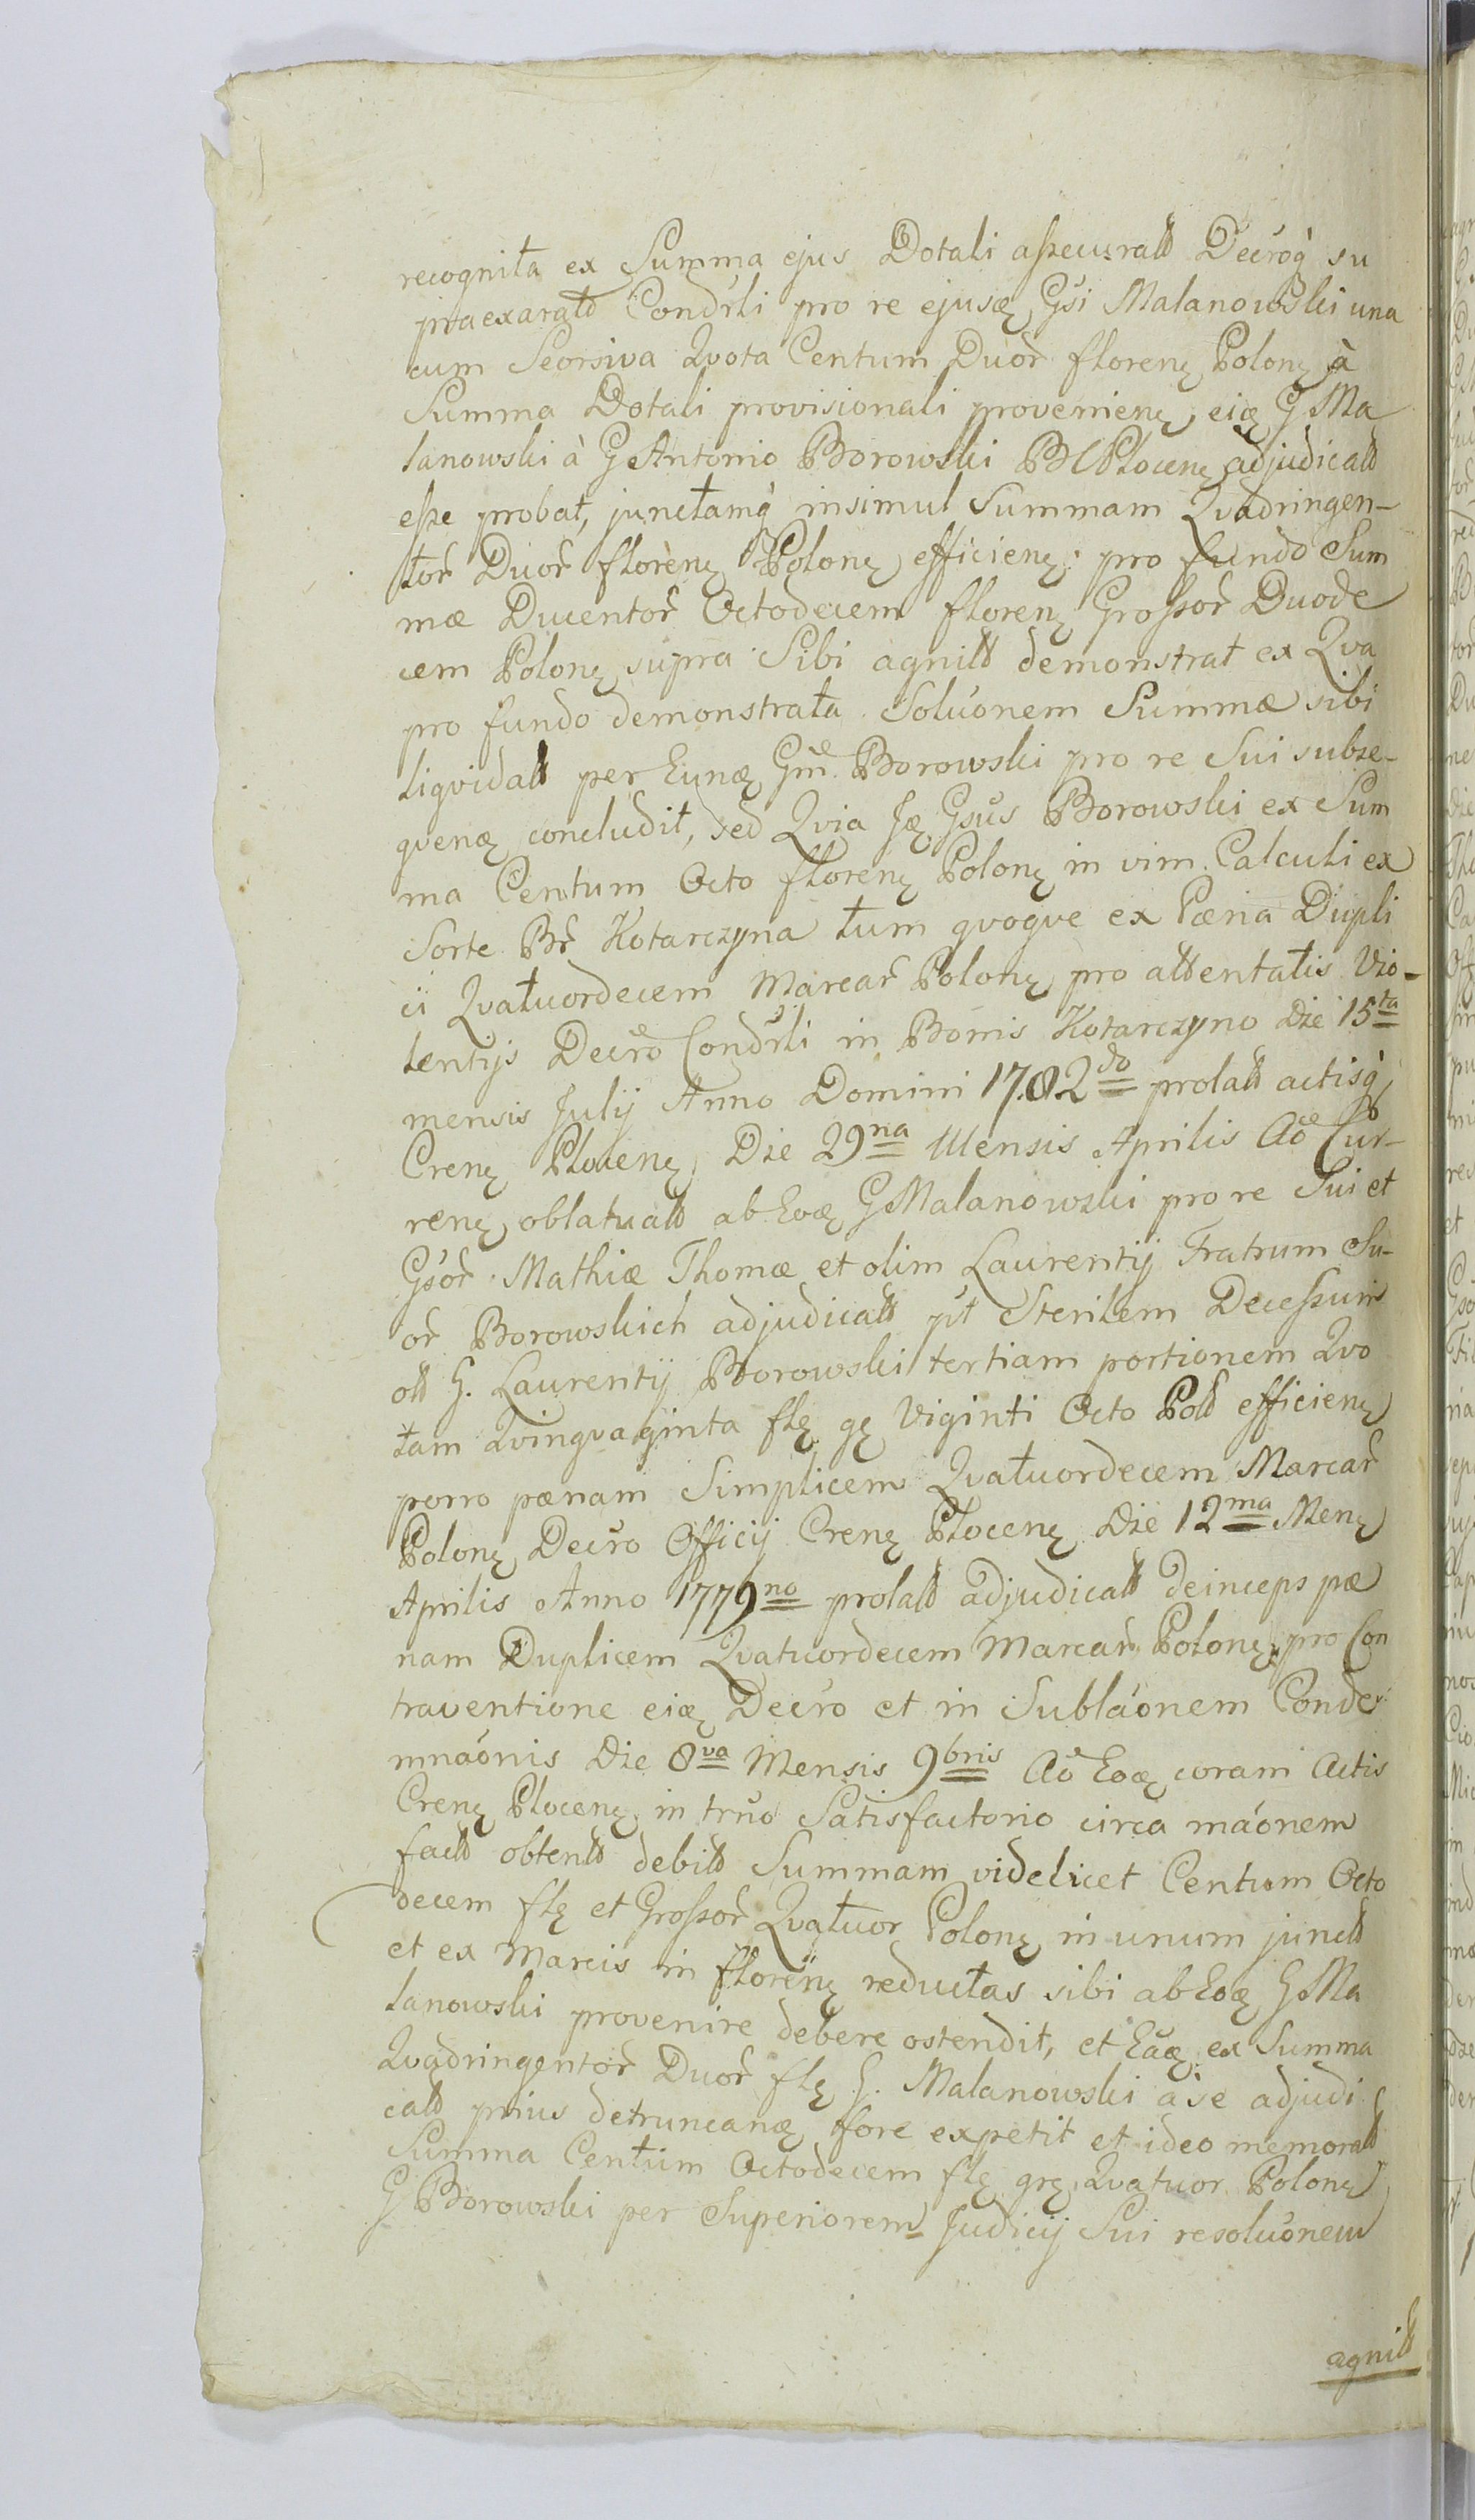 recognita ex Summa ejus Dotali assecuratt Decroq̀ su
praexaratt Condrli pro re ejusę Gsi Malanowski una
cum Seorsiva Qvota Centum Duor̃ florenę Polonę à
Summa Dotali provisionali provenienę eię G Ma
lanowski à G Antonio Borowski B C Plocenę adjudicatt
esse probat, junctamq̀ insimul Summam Qvadringen-
tor̃ Duor̃ florenę Polonę efficienę pro fundo Sum
mæ Ducentor̃ Octodecem florenę Grossor̃ Duode
cem Polonę supra Sibi agnitt demonstrat ex Qva
pro fundo demonstrata Soluónem Summæ sibi
liqvidatt per Eunę Gm̃ Borowski pro re Sui subse-
qvenę concludit, sed Qvia Ję Gsus Borowski ex Sum
ma Centum Octo florenę Polonę in vim Calculi ex
Sorte Br̃ Kotarczyna tum qvoqve ex Pæna Dupli
ci Qvatuordecem Marcar̃ Polonę pro attentatis Vio-
lentijs Decro Condrli in Bonis Kotarczyno Die 15ta
mensis Julij Anno Domini 1782do prolatt actisq̀
Crenę Plocenę Die 29na Mensis Aprilis Aõ Cur-
renę oblatuatt ab Eoę G Malanowski pro re Sui et
Gsor̃ Mathiæ Thomæ et olim Laurentij Fratrum Su-
or̃ Borowskich adjudicatt pt Sterilem Decessum
ott G. Laurentij Borowski tertiam portionem Qvo
tam Qvinqvaginta flę gę Viginti Octo Poltt efficienę
porro pænam Simplicem Qvatuordecem Marcar̃
Polonę Decro Officij Crenę Plocenę Die 12ma Menę
Aprilis Anno 1779no prolatt adjudicatt deinceps pæ
nam Duplicem Qvatuordecem Marcar̃ Polonę pro Con
traventione eię Decro et in Subláonem Conde
mnáonis Die 8va Mensis 9bris Aõ Eoę coram Actis
Crenę Plocenę in trno Satisfactorio circa máonem
factt obtentt debitt Summam videlicet Centum Octo
decem flę et Grossor̃ Qvatuor Polonę in unum junctt
et ex Marcis in florenę reductas sibi ab Eoę G Ma
lanowski provenire debere ostendit, et Eaę ex Summa
Qvadringentor̃ Duor̃ flę G. Malanowski à se adjudi
catt prius detruncanę fore expetit et ideo memoratt
Summa Centum Octodecem flę grę Qvatuor Polonę
G Borowski per Superiorem Judicij Sui resoluónem
agnitt